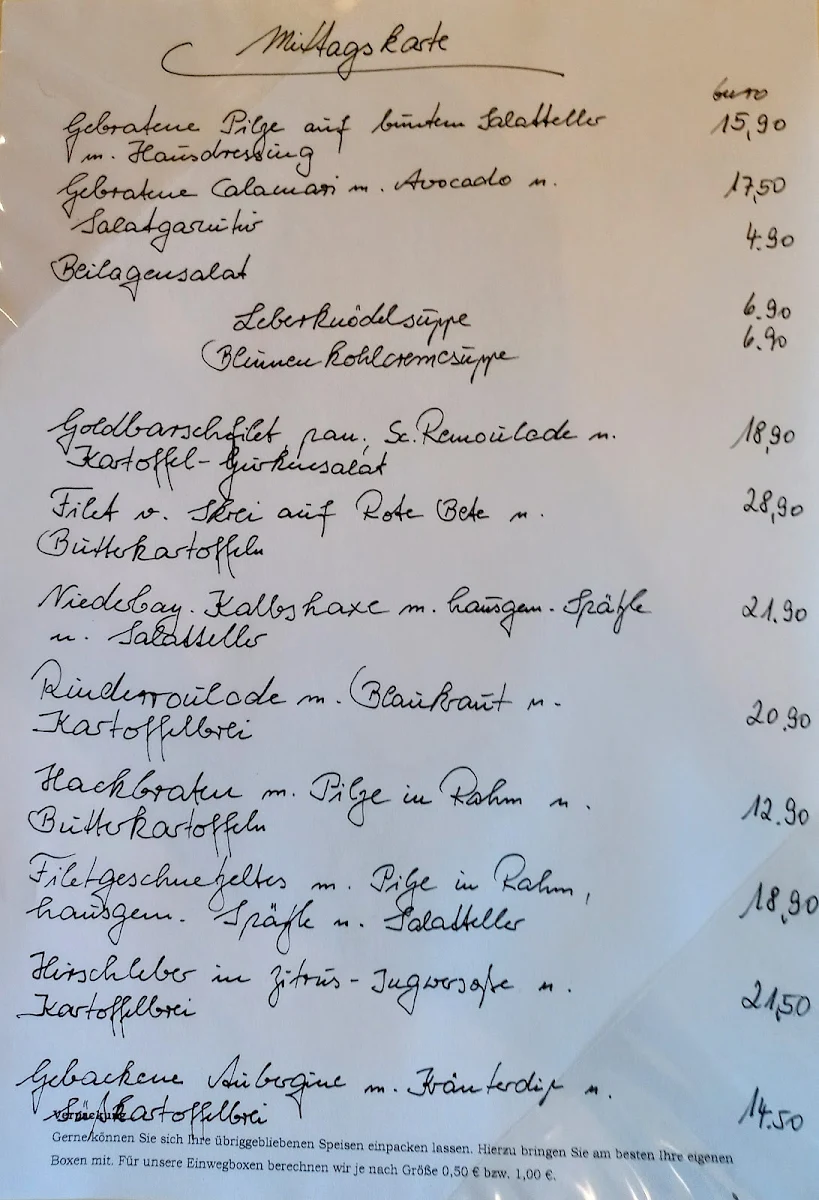 Mittagskarte
Euro
Gebratene Pilze auf buntem Salatteller 15,90
m. Hausdressing
Gebratene Calamari m. Avocado u. 17,50
Salatgarnitur
Beilagensalat 4.90
Leberknödelsuppe 6.90
Blumenkohlcremesuppe 6.90
Goldbarschfilet pan. Sc. Remoulade u. 18,90
Kartoffel-Gurkensalat
Filet v. Skrei auf Rote Bete u. 28,90
Butterkartoffeln
Niederbay. Kalbshaxe m. hausgem. Spätzle 21.90
u. Salatteller
Rinderroulade m. Blaukraut u. 20.90
Kartoffelbrei
Hackbraten m. Pilze in Rahm u. 12.90
Butterkartoffeln
Filetgeschnetzeltes m. Pilze in Rahm, 18,90
hausgem. Spätzle u. Salatteller
Hirschleber in Zitrus-Ingwersoße u. 21,50
Kartoffelbrei
Gebackene Aubergine m. Kräuterdip u. 14.50
Süßkartoffelbrei
Verpackung
Gerne können Sie sich Ihre übriggebliebenen Speisen einpacken lassen. Hierzu bringen Sie am besten Ihre eigenen
Boxen mit. Für unsere Einwegboxen berechnen wir je nach Größe 0,50 € bzw. 1,00 €.